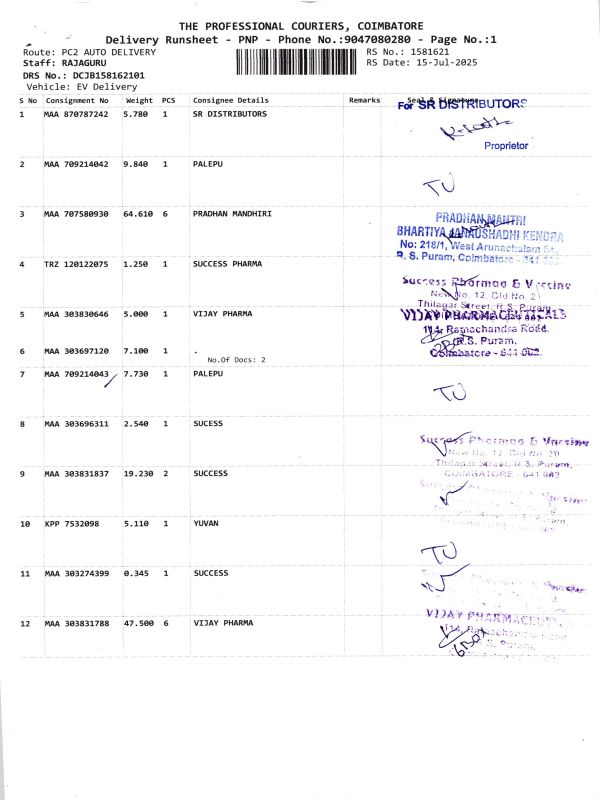 THE PROFESSIONAL COURIERS, COIMBATORE
Delivery Runsheet - PNP - Phone No.:9047080280 - Page No.:1
Route: PC2 AUTO DELIVERY
RS No.: 1581621
Staff: RAJAGURU
RS Date: 15-Jul-2025
DRS No.: DCJB158162101
Vehicle: EV Delivery
S No Consignment No Weight PCS Consignee Details Remarks Seal & Signature
1 MAA 870787242 5.780 1 SR DISTRIBUTORS
For SR DISTRIBUTORS
Proprietor
2 MAA 709214042 9.840 1 PALEPU
TU
3 MAA 707580930 64.610 6 PRADHAN MANDHIRI
PRADHAN MANTRI
BHARTIYA JANAUSHADHI KENDRA
No: 218/1, West Arunachalam St.,
R. S. Puram, Coimbatore - 641 002.
4 TRZ 120122075 1.250 1 SUCCESS PHARMA
Success Pharmaa & Vaccine
New No. 12, Old No. 2
Thilagar Street, R.S. Puram
5 MAA 303830646 5.000 1 VIJAY PHARMA
VIJAY PHARMACEUTICALS
114, Ramachandra Road.
R.S. Puram.
Coimbatore - 641 002.
6 MAA 303697120 7.100 1 .
No.Of Docs: 2
7 MAA 709214043 7.730 1 PALEPU
TU
8 MAA 303696311 2.540 1 SUCESS
Success Pharmaa & Vaccine
New No. 12, Old No. 20
Thilagar Street, R.S. Puram,
COIMBATORE - 641 002
9 MAA 303831837 19.230 2 SUCCESS
10 KPP 7532098 5.110 1 YUVAN
TU
11 MAA 303274399 0.345 1 SUCCESS
12 MAA 303831788 47.500 6 VIJAY PHARMA
VIJAY PHARMACEUTI
114, Ramachandra
R.S. Puram,